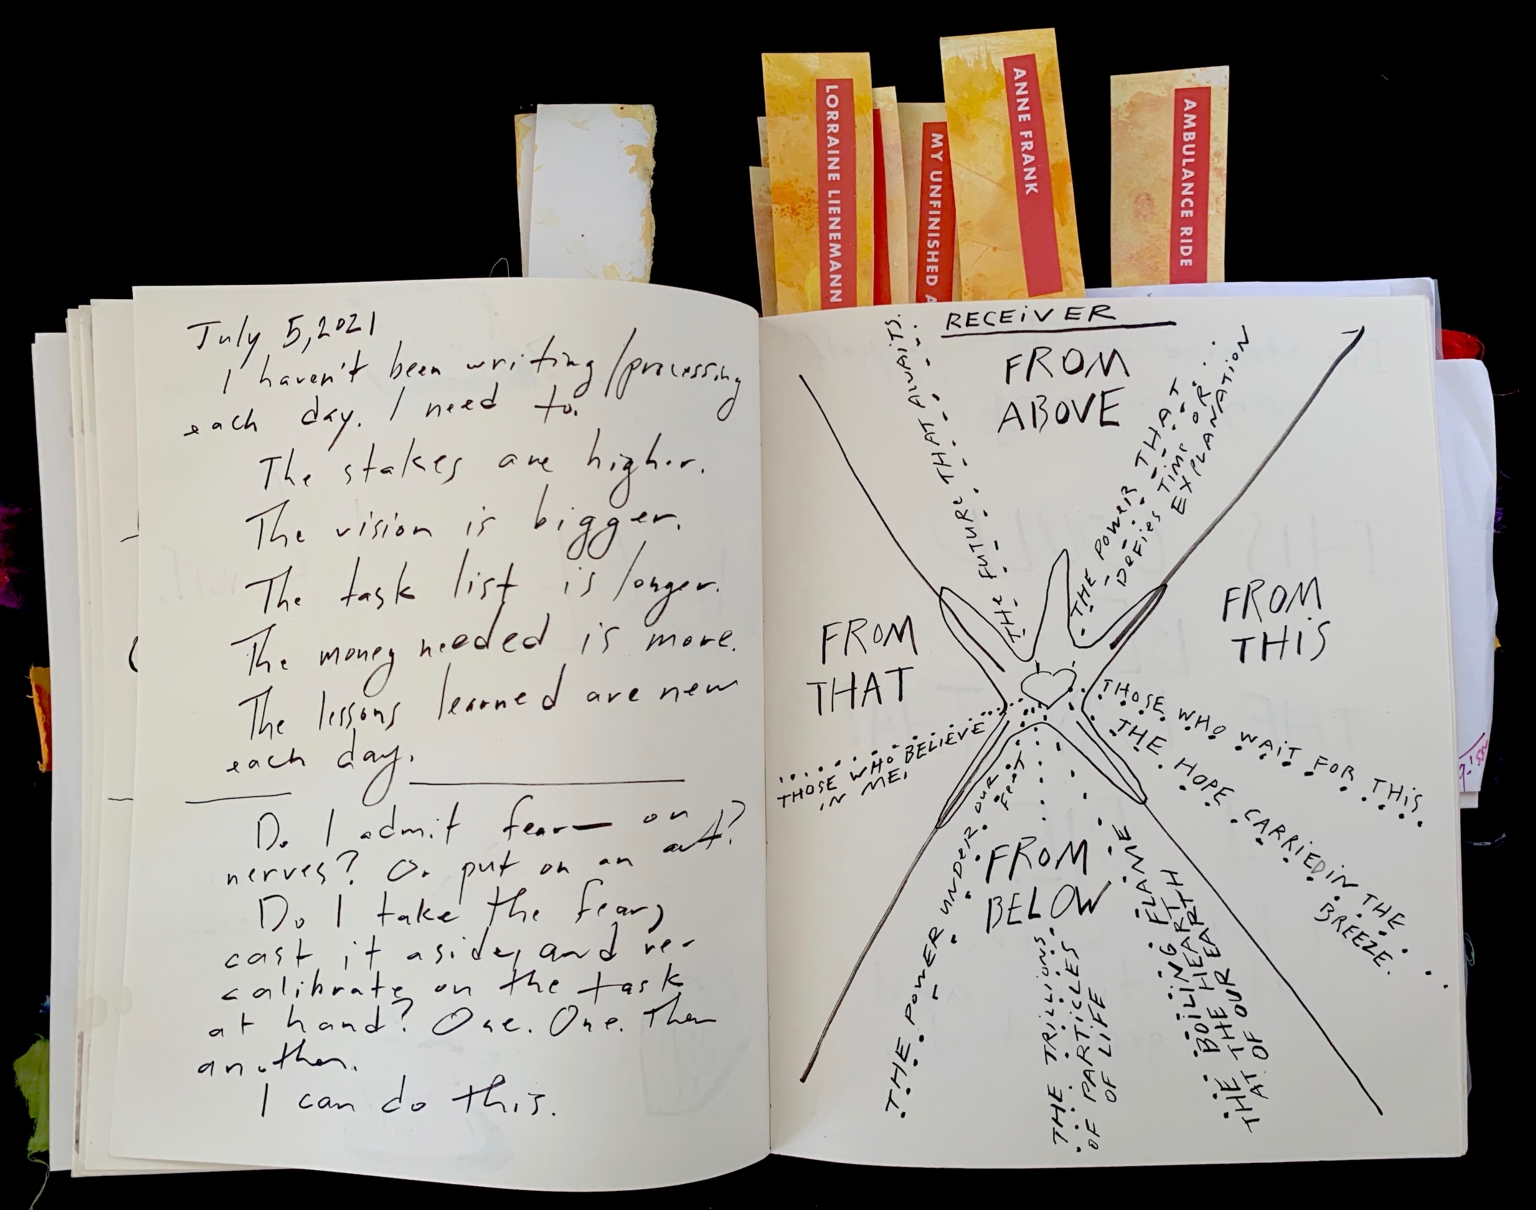 LORRAINE LIENEMANN
MY UNFINISHED A
ANNE FRANK
AMBULANCE RIDE
July 5, 2021
I haven't been writing/processing
each day. I need to.
The stakes are higher.
The vision is bigger.
The task list is longer.
The money needed is more.
The lessons learned are new
each day.
Do I admit fear on
nerves? Or put on an act?
Do I take the fear,
cast it aside, and re-
calibrate on the task
at hand? One. One. Then
another.
I can do this.
RECEIVER
FROM
ABOVE
THE FUTURE THAT AWAITS.
THE POWER THAT
DEFIES TIME OR
EXPLANATION
FROM
THAT
FROM
THIS
THOSE WHO BELIEVE
IN ME.
THOSE WHO WAIT FOR THIS
THE HOPE CARRIED IN THE
BREEZE.
FROM
BELOW
THE POWER UNDER OUR
FEET
THE TRILLIONS
OF PARTICLES
OF LIFE
THE BOILING FLAME
AT THE HEARTH
OF OUR EARTH